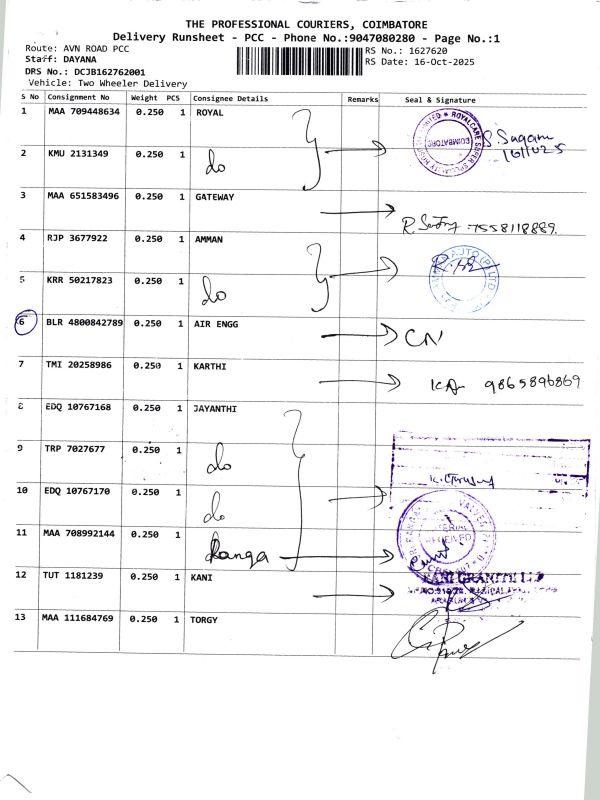 THE PROFESSIONAL COURIERS, COIMBATORE
Delivery Runsheet - PCC - Phone No.:9047080280 - Page No.:1
Route: AVN ROAD PCC
RS No.: 1627620
Staff: DAYANA
RS Date: 16-Oct-2025
DRS No.: DCJB162762001
Vehicle: Two Wheeler Delivery
S No Consignment No Weight PCS Consignee Details Remarks Seal & Signature
1 MAA 709448634 0.250 1 ROYAL
2 KMU 2131349 0.250 1 do
3 MAA 651583496 0.250 1 GATEWAY
7558118889.
4 RJP 3677922 0.250 1 AMMAN
5 KRR 50217823 0.250 1 do
6 BLR 4800842789 0.250 1 AIR ENGG CN
7 TMI 20258986 0.250 1 KARTHI 9865896869
8 EDQ 10767168 0.250 1 JAYANTHI
9 TRP 7027677 0.250 1 do
10 EDQ 10767170 0.250 1 do
11 MAA 708992144 0.250 1 Ranga
12 TUT 1181239 0.250 1 KANI
13 MAA 111684769 0.250 1 TORGY